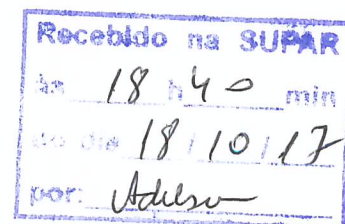 Recebido na SUPAR
às 18 h 40 min
do dia 18 / 10 / 17
por: Adelson